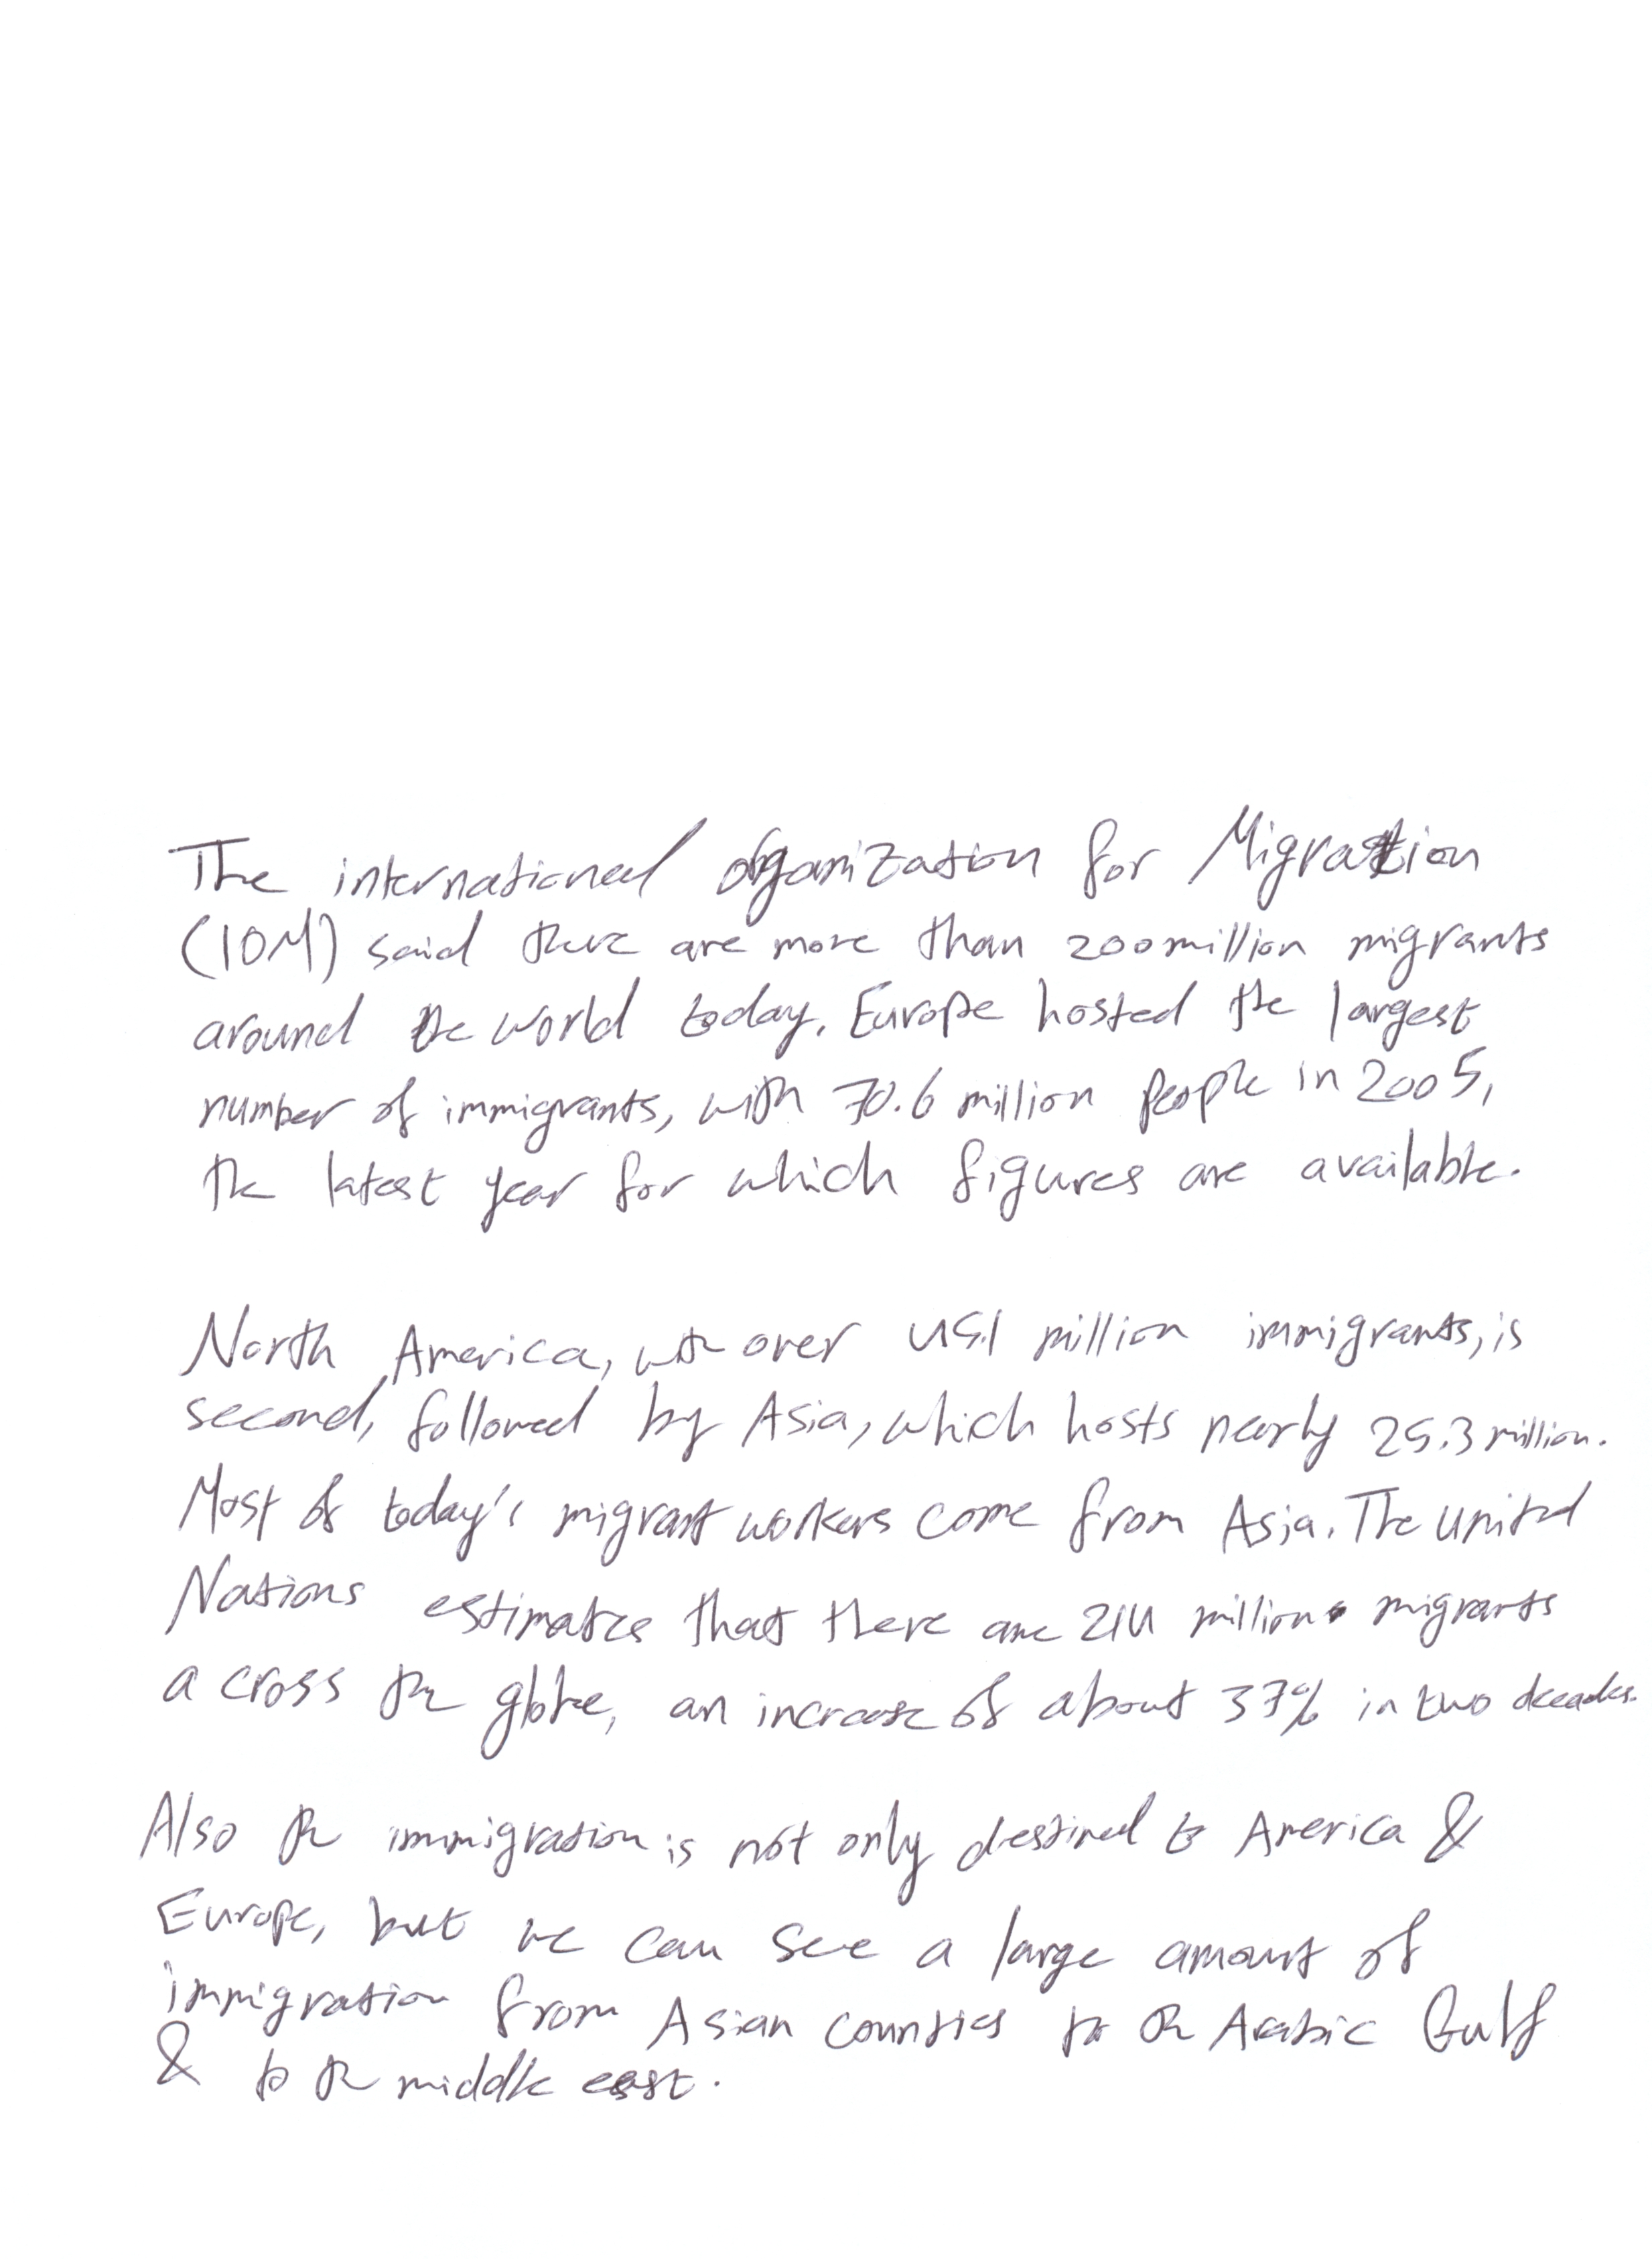 The international organization for Migration
(IOM) said there are more than 200 million migrants
around the world today. Europe hosted the largest
number of immigrants, with 70.6 million people in 2005,
the latest year for which figures are available.
North America, with over 45.1 million immigrants, is
second, followed by Asia, which hosts nearly 25.3 million.
Most of today's migrant workers come from Asia. The united
Nations estimates that there are 214 million migrants
a cross the globe, an increase of about 37% in two decades.
Also the immigration is not only destined to America &
Europe, but we can see a large amount of
immigration from Asian countries to the Arabic Gulf
& to the middle east.